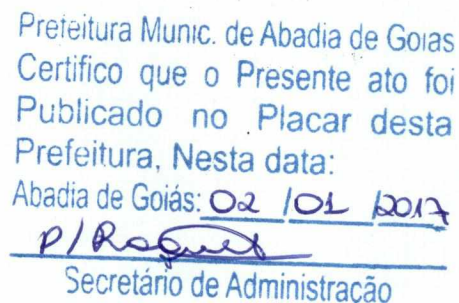 Prefeitura Munic. de Abadia de Goias
Certifico que o Presente ato foi
Publicado no Placar desta
Prefeitura, Nesta data:
Abadia de Goiás: 02 /01 /2017
P/
Secretário de Administração